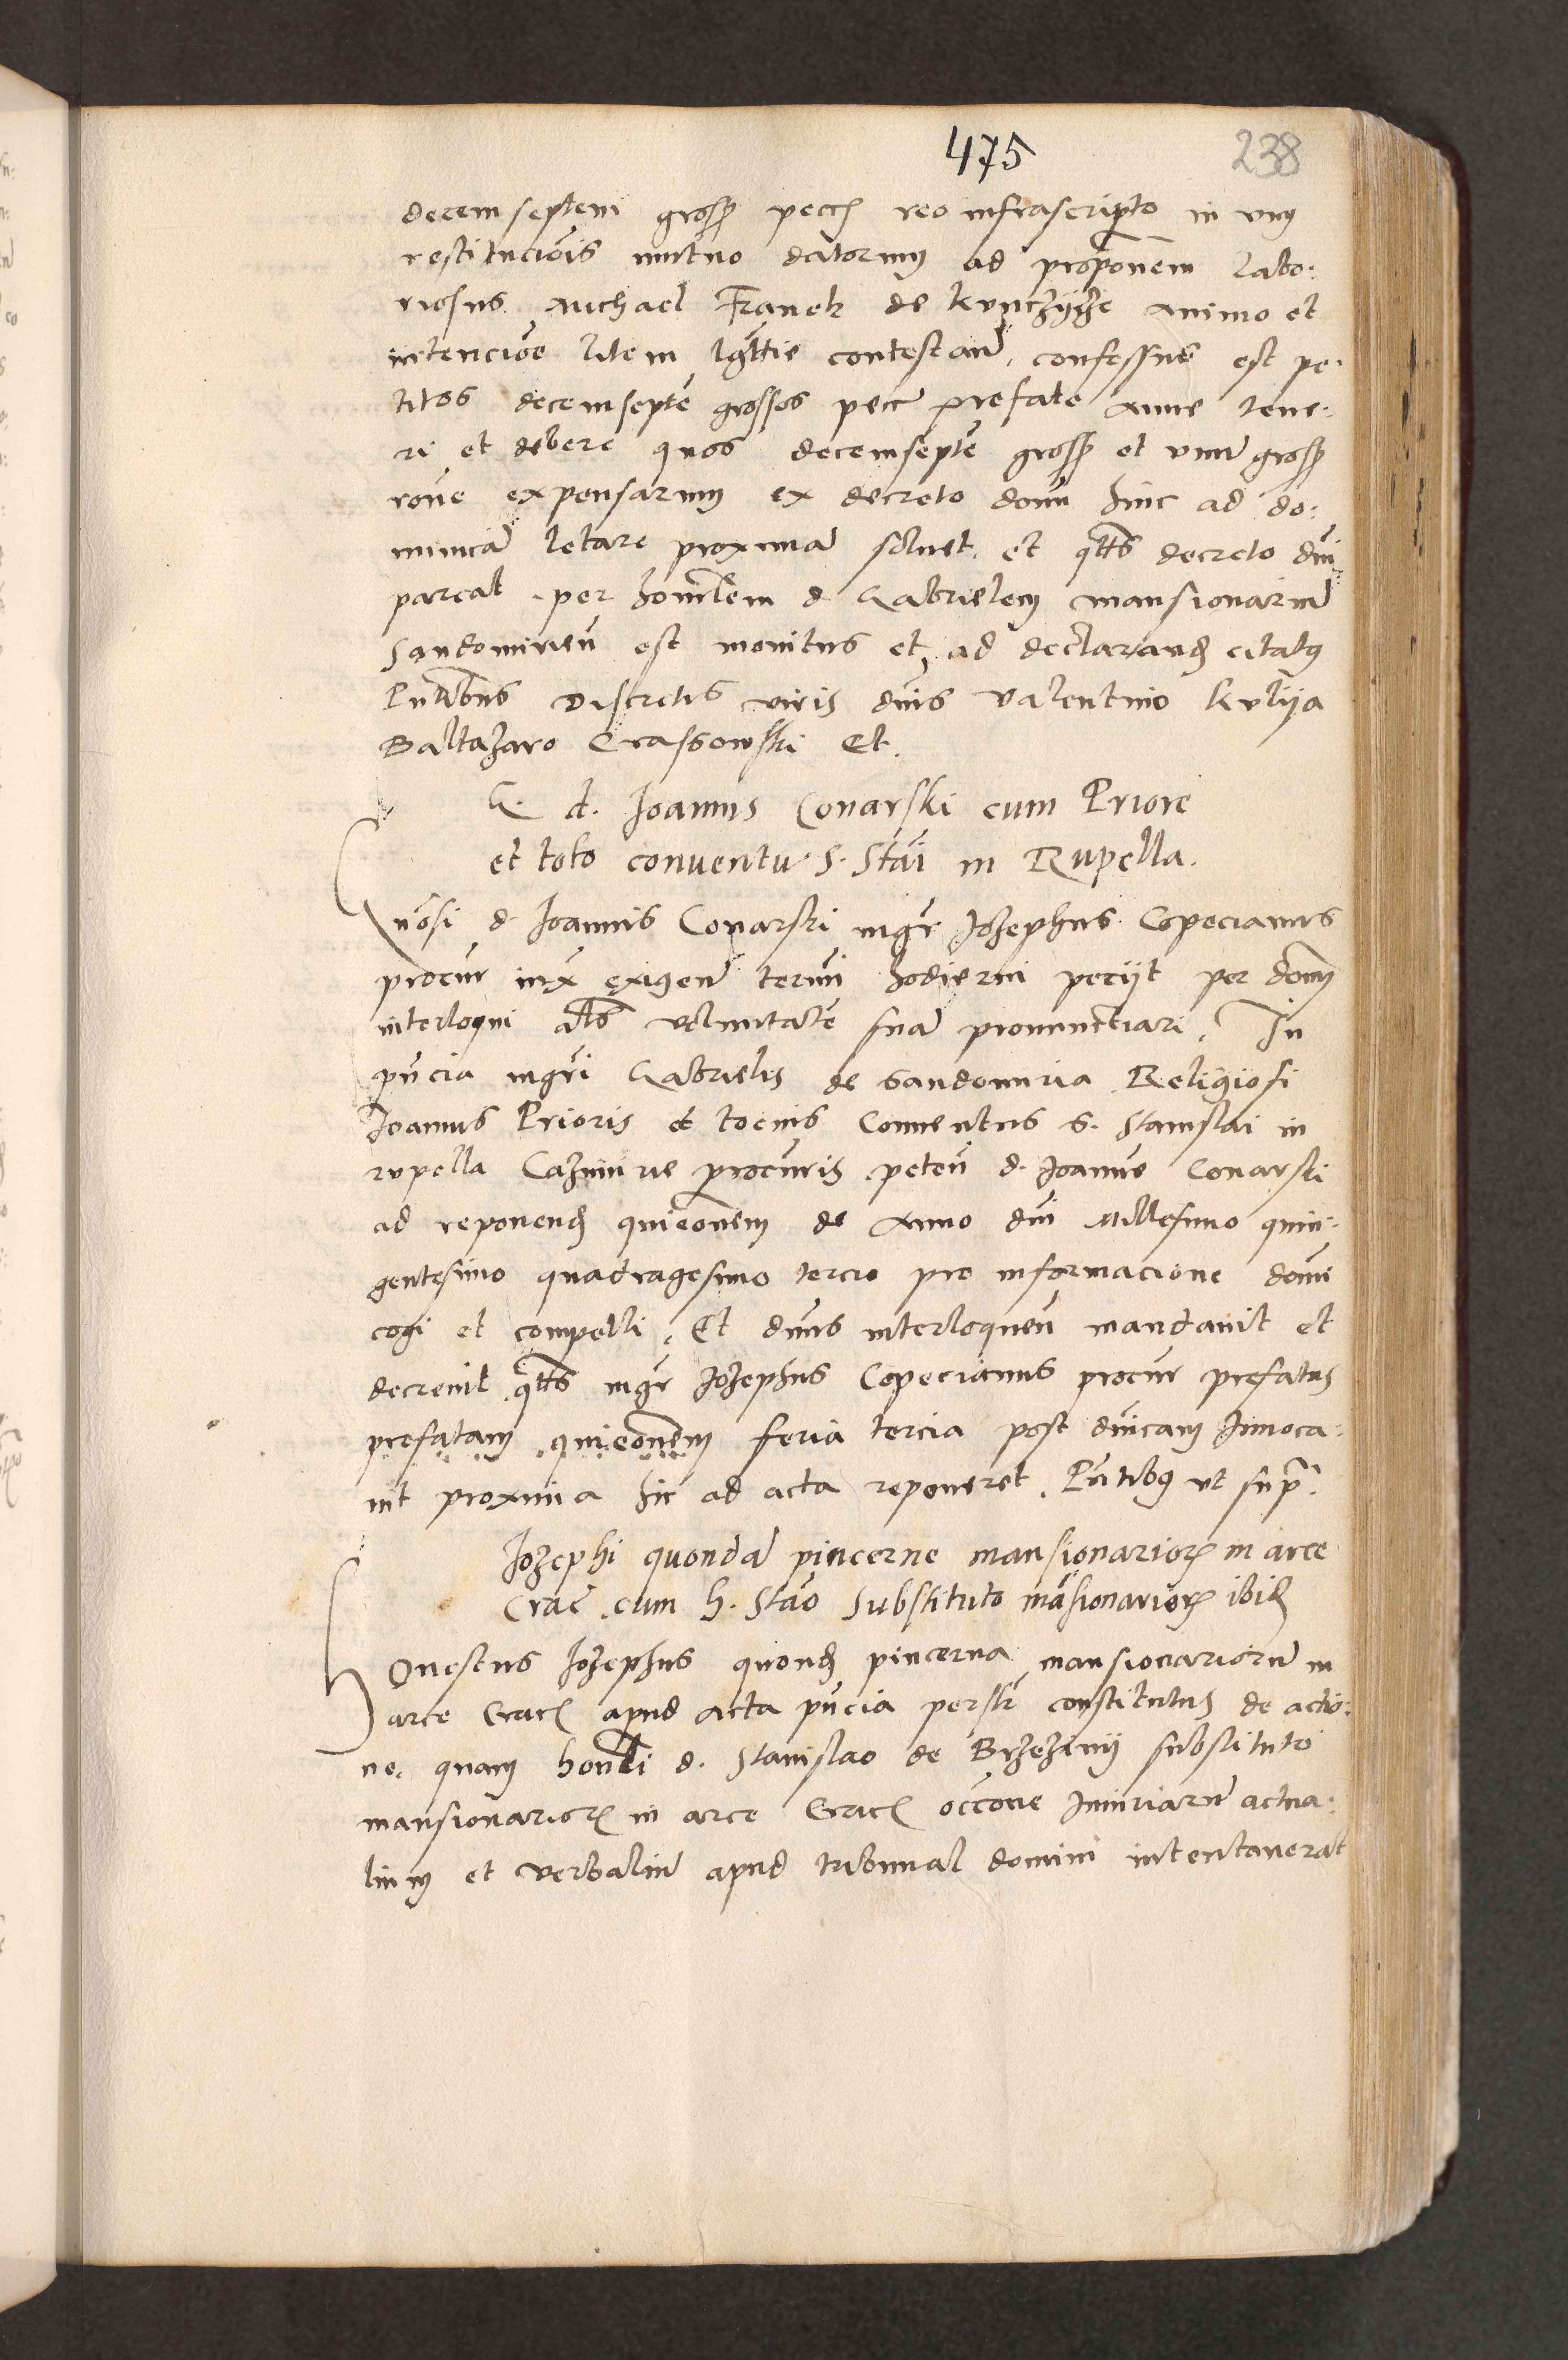 475 238
decemseptem grosß pecch reo infrascripto in vim
restitucōis mutuo datorum ad proponem labo:
riosus Michael Franek de kunczycze animo et
intencōe litem lgttie contestan̄. confessus est pe.
titos decemseptē grossos pecc prefate Anne tene:
ri et debere quos decemseptē grosß et unū grosß
rōne expensarum ex decreto domī hinc ad do:
minicā letare proximā soluet. et qtts decreto dni
pareat per honlem d Gabrielem mansionariū
Sandomirien̄ est monitus et ad declarand citatus
Pntibus Discretis viris dnis Valentino kulija
Baltazaro Crassowski Et.
G. d. Joannis Conarski cum Priore
et toto conuentu S. Stāi in Rupella.
Gnōsi d Joannis Conarski mgr Jozephus Copecianus
procur iux exigen̄ termī hodierni peciit per domī
interloqui als voluntatē suā pronunctiari. In
pn̄cia mgri Gabrielis de Sandomiria Religiosi
Joannis Prioris et tocius Conuentus S. Stanislai in
rupella Cazmirie procuris peten̄ d. Joanne Conarski
ad reponend quieōnem de Anno dni Millesimo quin:
gentesimo quadragesimo tercio pro informacione domī
cogi et compelli. Et dnus interloquen̄ mandauit et
decreuit qtts mgr Jozephus Copecianus procur prefatus
prefatam quieōnem feria tercia post dnicam Inuoca:
uit proxima hic ad acta reponeret. Pntibus ut sup.
Jozephi quondā pincerne mansionarior in arce
Crac cum h. Stāo Substituto māsionarior ibid
Honestus Jozephus quond pincerna mansionariorū in
arce Crac apud acta pn̄cia persr constitutus de actio:
ne. quam honli d. Stanislao de Brzeziny substituto
mansionarior in arce Crac occōne Iniuriarū actua:
lium et verbaliū apud tribunal domini intentauerat